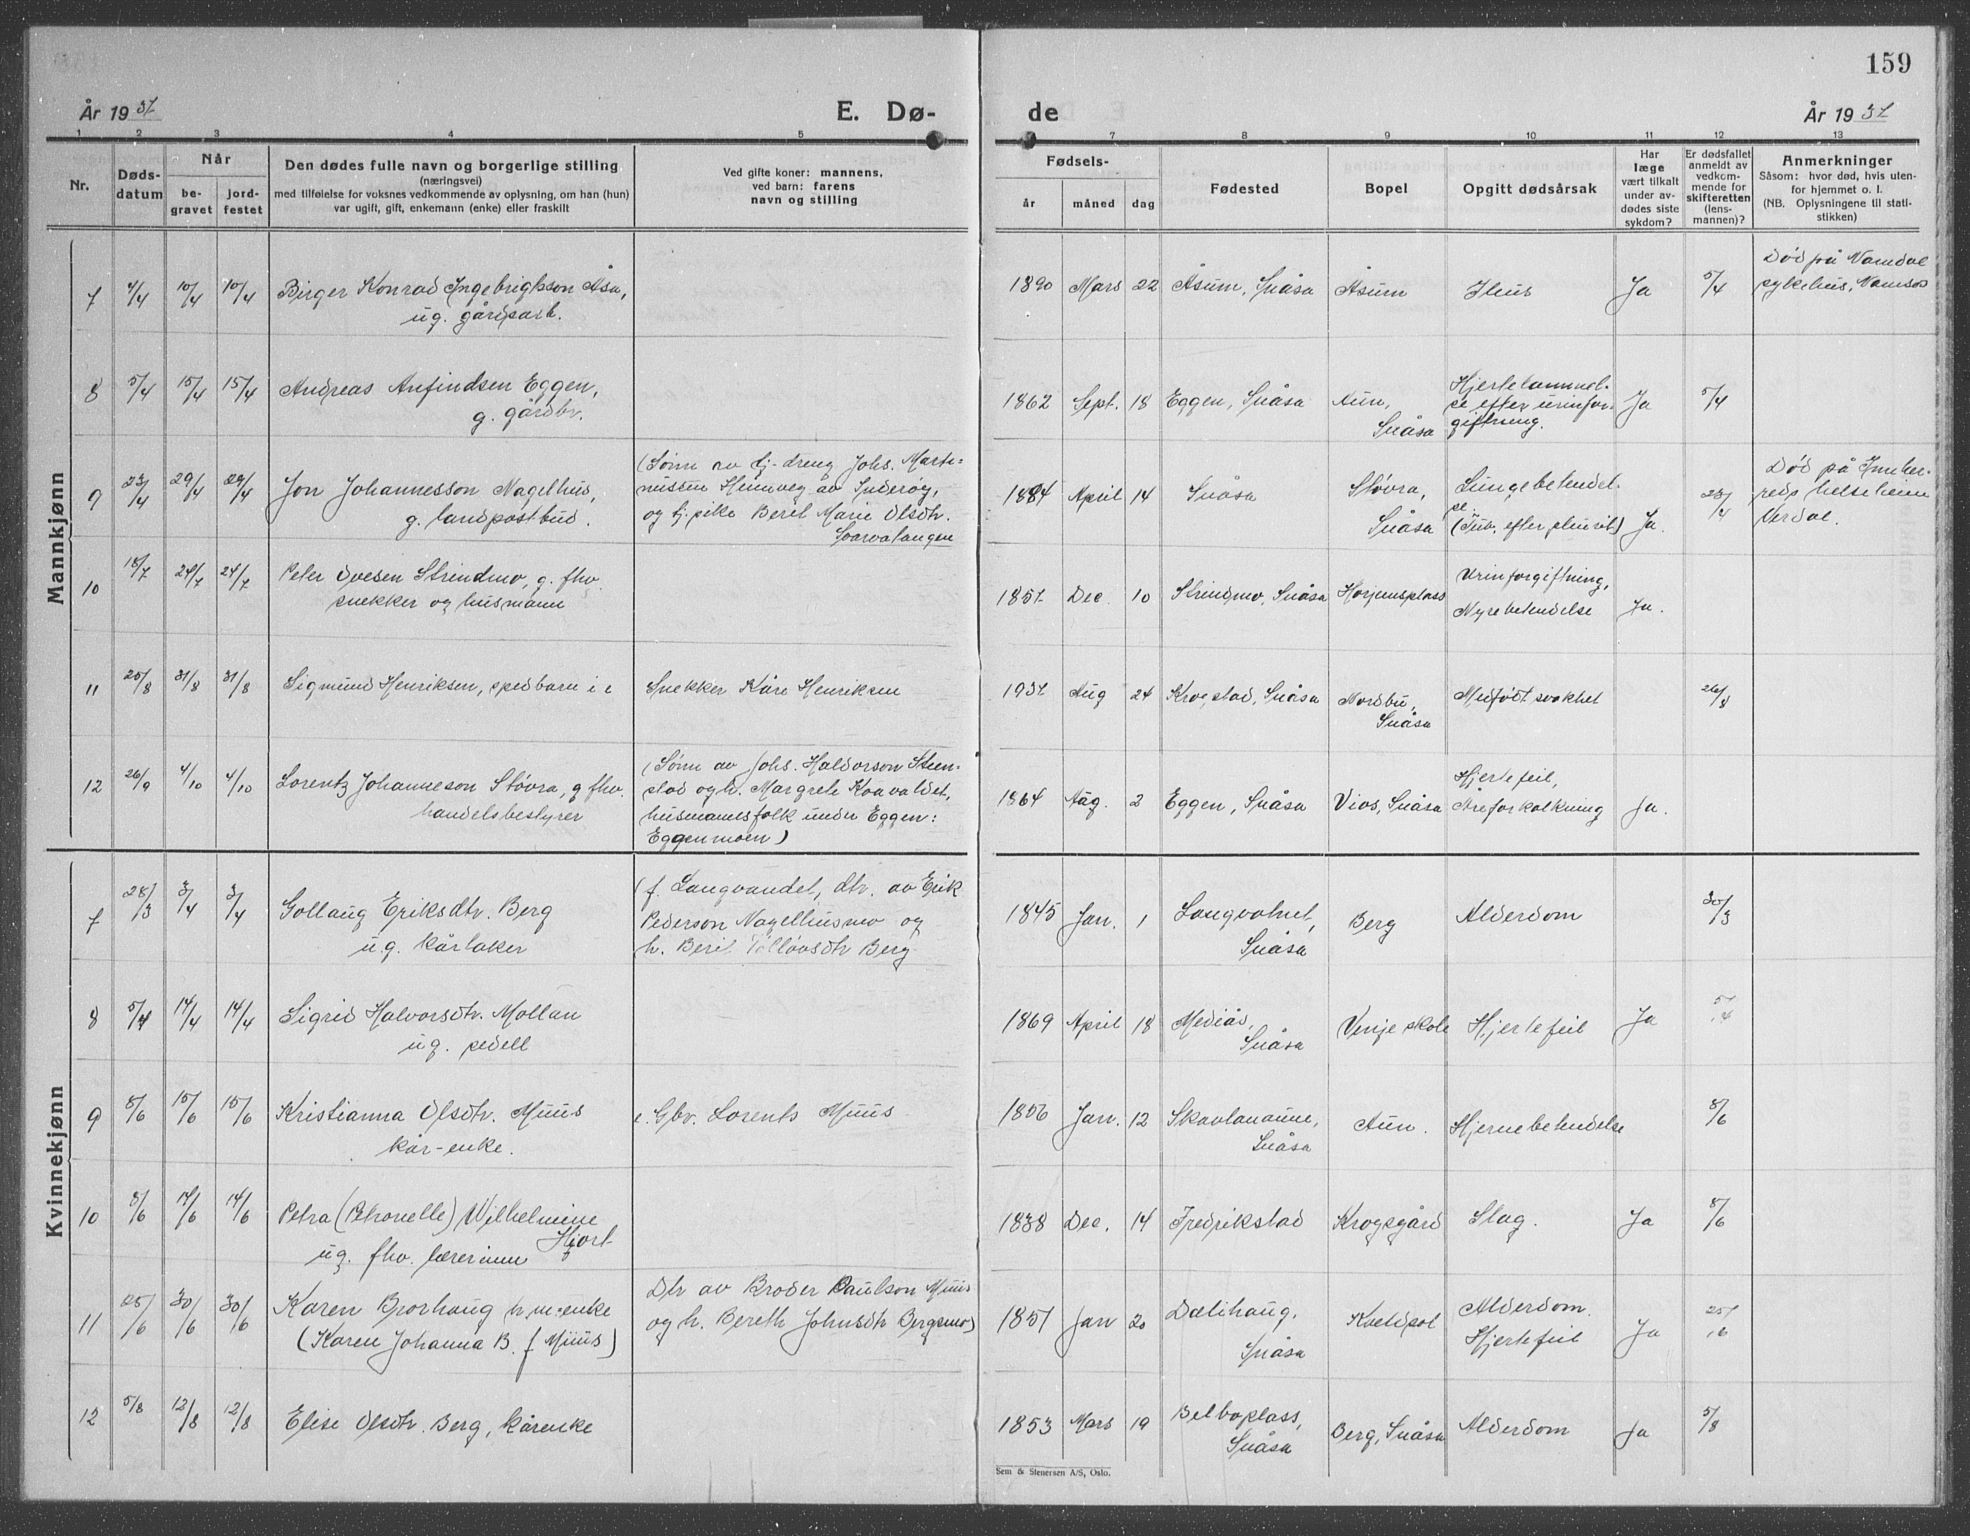 159
År 1937 E. Dø-
de År 1937
1 2 3 4 5
7 8 9 10 11 12 13
Nr.
Døds-
datum
Når
be-
gravet
jord-
festet
Den dødes fulle navn og borgerlige stilling
(næringsvei)
med tilføielse for voksnes vedkommende av oplysning, om han (hun)
var ugift, gift, enkemann (enke) eller fraskilt
Ved gifte koner: mannens,
ved barn: farens
navn og stilling
Fødsels-
år måned dag
Fødested
Bopel
Opgitt dødsårsak
Har
læge
vært tilkalt
under av-
dødes siste
sykdom?
Er dødsfallet
anmeldt av
vedkom-
mende for
skifteretten
(lens-
mannen)?
Anmerkninger
Såsom: hvor død, hvis uten-
for hjemmet o. l.
(NB. Oplysningene til stati-
stikken)
Mannkjønn
7 4/4 10/4 10/4 Birger Konrad Ingebrigtsson Åsu,
ug. gårdsarb.
1890 Mars 22 Åsum, Snåsa Åsum Ileus Ja 5/4
Død på Namdal
sykehus, Namsos
8 5/4 15/4 15/4 Andreas Arfindsen Eggen,
g. gårdbr.
1862 Sept. 18 Eggen, Snåsa Aun,
Snåsa
Hjertelammel-
se efter urinfor-
giftning.
Ja 5/4
9 23/4 29/4 29/4 Jon Johannesson Nagelhus,
g. landpostbud.
(Sønn av tj-dreng Johs. Marte-
nussen Heimveg av Inderøy,
og tj. pike Beret Marie Olsdtr.
Svarvatangen
1884 April 14 Snåsa Støvra,
Snåsa
Lungebetendel-
se
(Tub. efter pleurit)
Ja. 23/4
Død på Innher-
reds helseheim
Verdal.
10 18/7 24/7 24/7 Peter Ovesen Strindmo, g. fhv.
snekker og husmann
1857 Dec. 10 Strindmo, Snåsa Horjemsplass
Urinforgiftning,
Nyrebetendelse
Ja.
11 25/8 31/8 31/8 Sigmund Henriksen, spedbarn i e
Snekker Kåre Henriksen
1937 Aug 24 Krogstad, Snåsa Nordbu,
Snåsa
Medfødt svakhet 26/8
12 26/9 4/10 4/10 Lorentz Johanneson Støvra, g fhv.
handelsbestyrer
(Sønn av Johs. Haldorson Steen-
stad og h. Margrete Koavaldet,
husmannsfolk under Eggen:
Eggenmoen)
1864 Aug. 2 Eggen, Snåsa Vios, Snåsa
Hjertefeil,
Åreforkalkning
Ja.
Kvinnekjønn
7 28/3 3/4 3/4 Gollaug Eriksdtr. Berg
ug. kårtaker
(f. Langvandet, dtr. av Erik
Pederson Nagelhusmo og
h. Beret Tolløvsdtr Berg
1845 Jan. 1 Langvatnet,
Snåsa
Berg Alderdom 30/3
8 5/4 14/4 14/4 Sigrid Halvorsdtr. Mollan
ug. pedell
1869 April 18 Mediås,
Snåsa
Vinje skole Hjertefeil Ja 5/4
9 8/6 15/6 15/6 Kristianna Olsdtr. Muus
kår-enke.
e. Gbr. Lorents Muus
1856 Jan. 12 Skavlanaune,
Snåsa
Aun. Hjernebetendelse 8/6
10 8/6 14/6 14/6 Petra (Petronelle) Wilhelmine
Hjort
ug. fhv. lærerinne
1838 Dec. 14 Fredrikstad Krogsgård Slag. Ja 8/6
11 25/6 30/6 30/6 Karen Brorhaug hm-enke
(Karen Johanna B. f Muus)
Dtr av Broder Paulson Muus
og h. Bereth Johnsdtr Bergsmo)
1851 Jan 20 Dalihaug,
Snåsa
Alderdom.
Hjertefeil
Ja 25/6
12 5/8 12/8 12/8 Elise Olsdtr. Berg, kårenke
1853 Mars 19 Belboplass,
Snåsa
Berg, Snåsa Alderdom Ja 5/8
Sem & Stenersen A/S, Oslo.